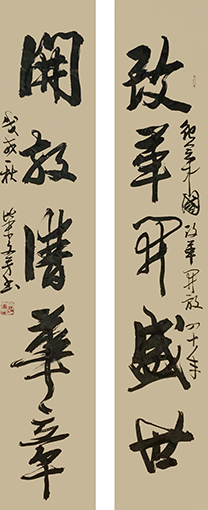 改革开盛世
纪念中國改革开放四十年
開放谱華章
戊戌秋